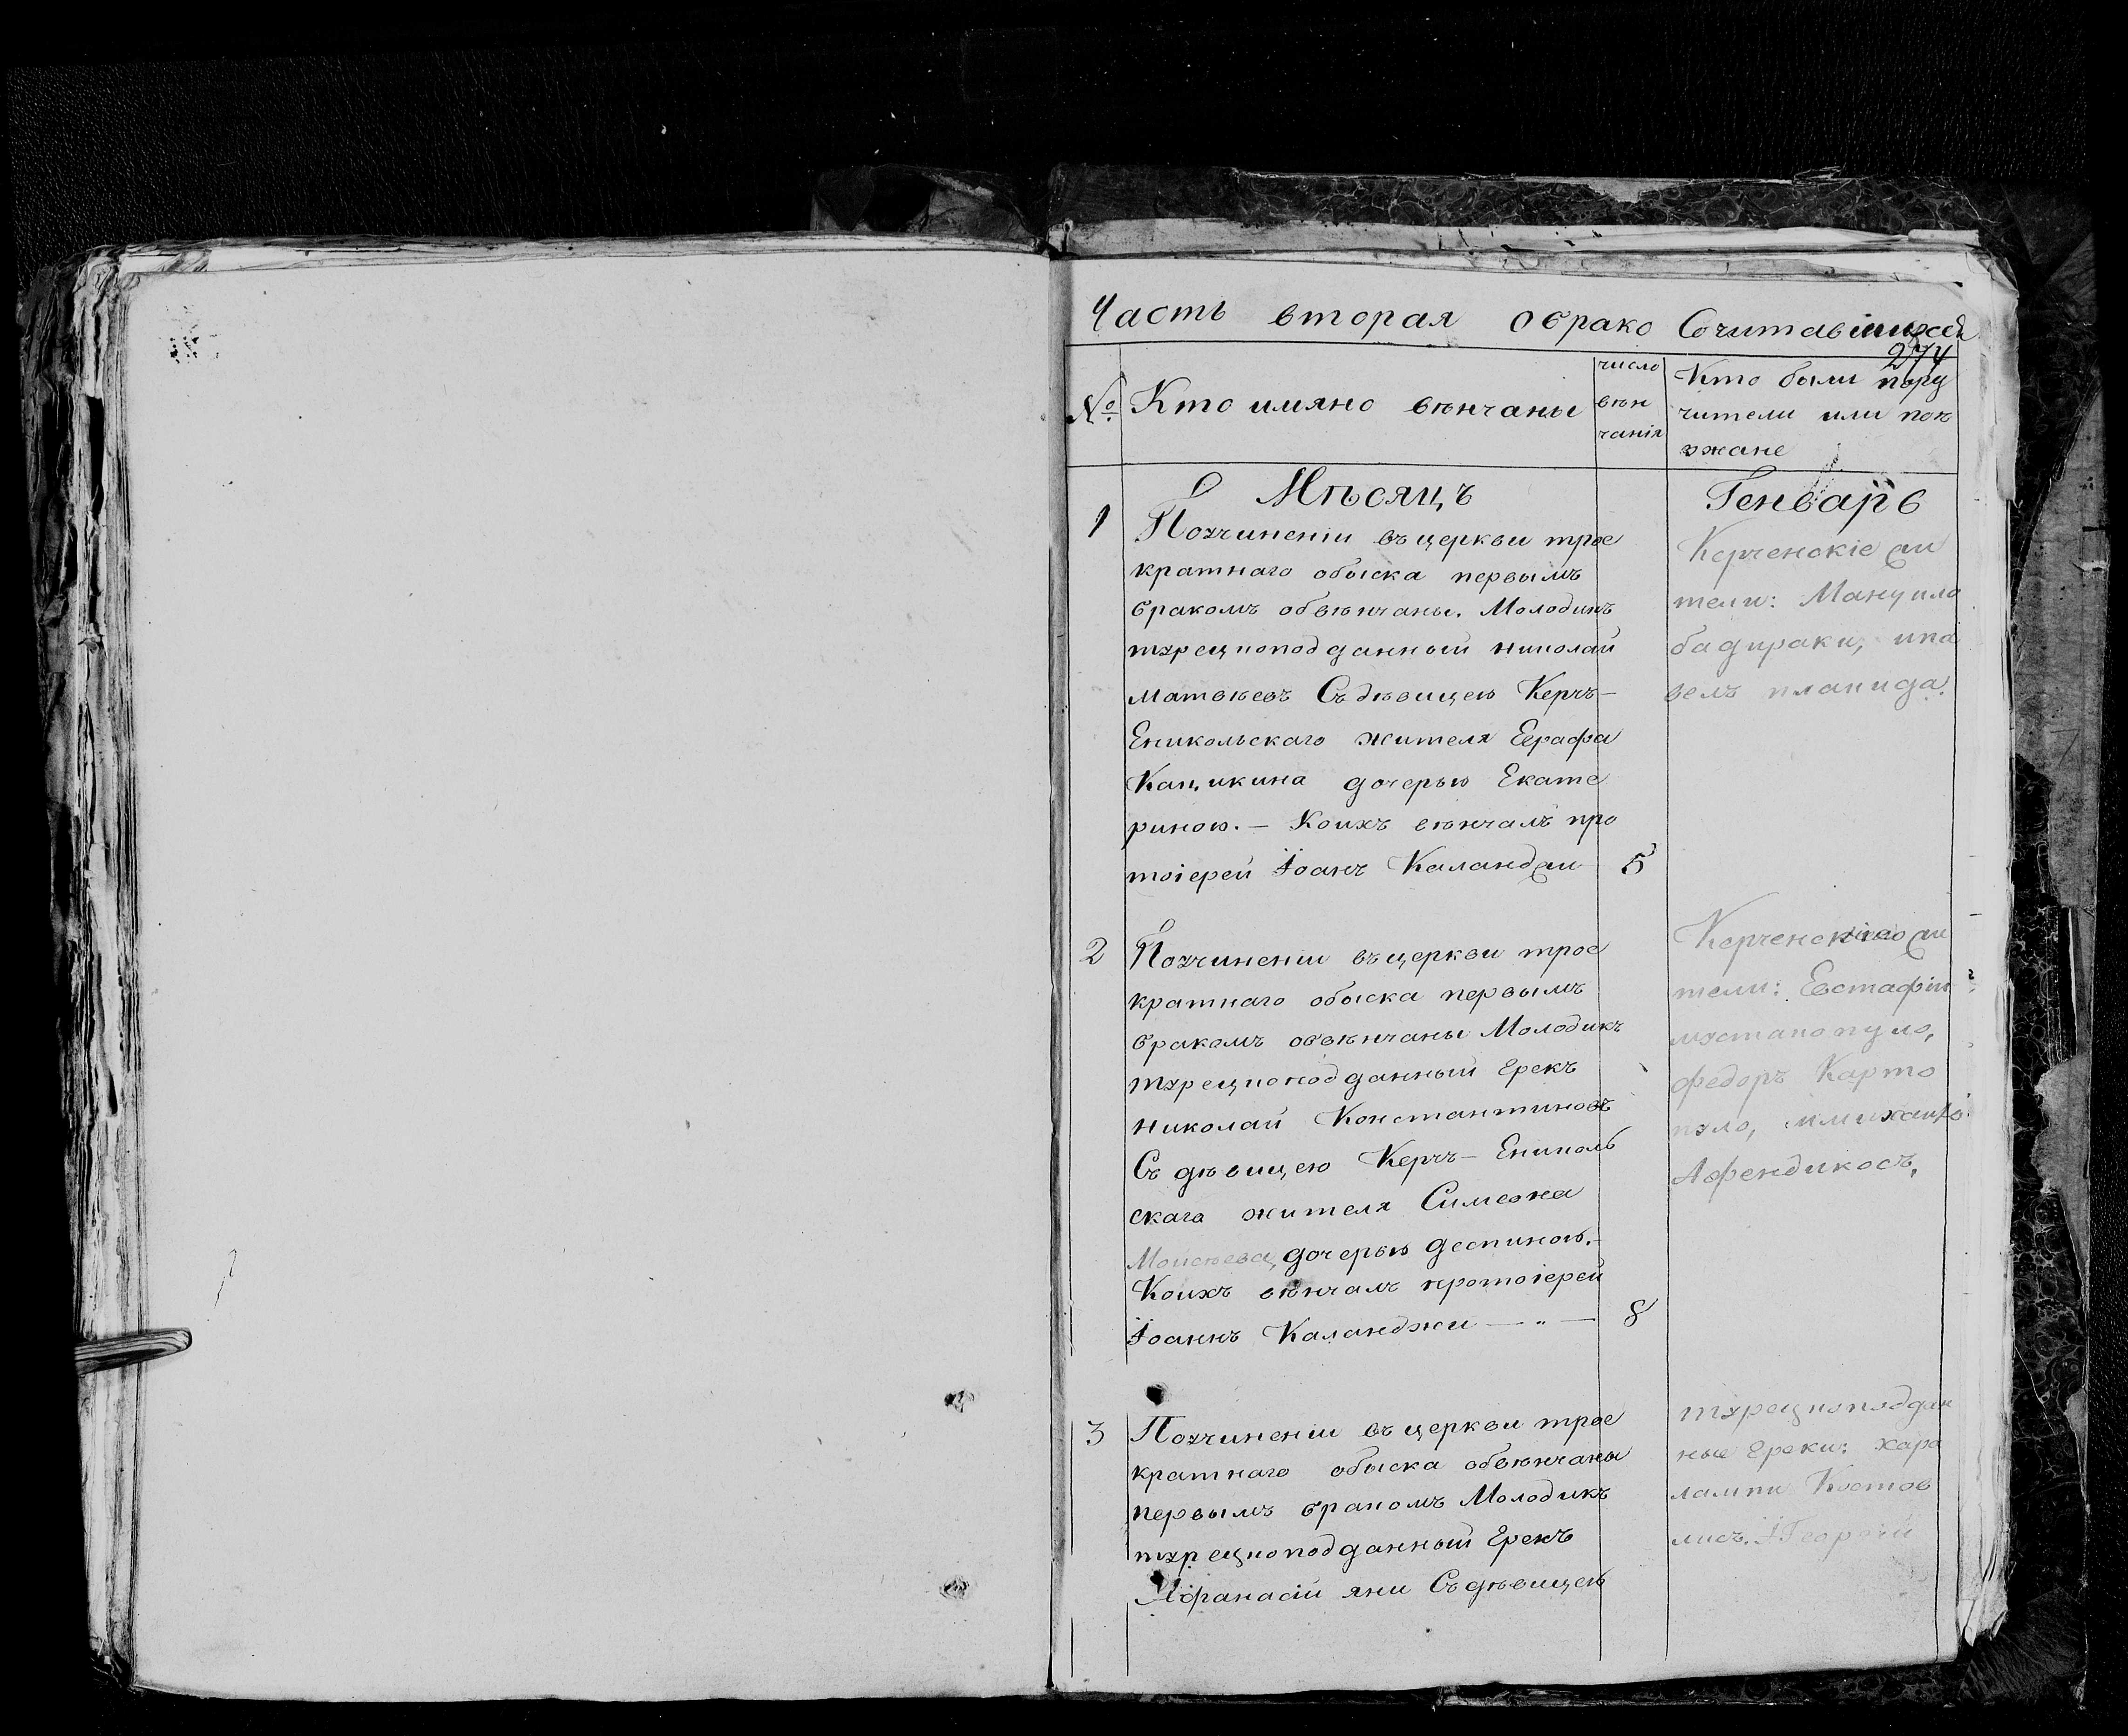 Часть вторая обрако Сочитавшихся
274
№
Кто имяно вѣнчаны
число
вѣн
чанія
Кто были пору
чители или поѣ
зжане
Мѣсяцъ
Генварь
1
Поучиненіи въ церкви трое
кратнаго обыска первымъ
бракомъ обвѣнчаны. Молодикъ
турецкоподданный николай
матвѣевъ Съ дѣвицею Керчъ-
Еникольскаго жителя Серафа
дочерью Екате
риною. — Коихъ вѣнчалъ про
тоіерей Іоанъ Каланджи
5
Керченскіе жи
тели: Мануило
бадираки, ипа
велъ планида.
2
Поучиненіи въ церкви трое
кратнаго обыска первымъ
бракомъ обвѣнчаны Молодикъ
турецкоподданный Грекъ
николай Константиновъ
Съ дѣвицею Керчъ- Ениколь
скаго жителя Симеона
Моисѣева, дочерью деспиною.-
Коихъ вѣнчалъ протоіерей
Іоаннъ Каланджи — „ —
8
Керченскіе жи
тели: Евстафій
мустанопуло,
федоръ Карто
пуло, имихаилъ
Афендикосъ,
3
Поучиненіи въ церкви трое
кратнаго обыска обвѣнчаны
первымъ бракомъ Молодикъ
турецкоподданный Грекъ
Афанасій яни Съ дѣвицею
турецкоподдан
ные Греки: хара
лампи Костов
лисъ. Георгій